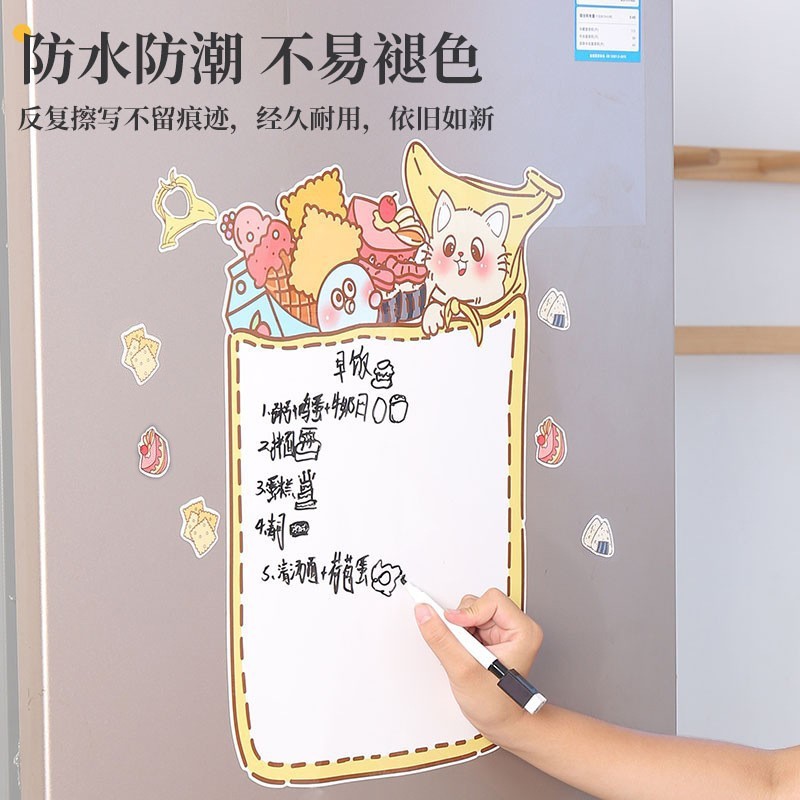 防水防潮 不易褪色
反复擦写不留痕迹，经久耐用，依旧如新
早饭
1.粥+鸡蛋+牛奶
2.拌面
3.蛋糕
4.寿司
5.清汤面+荷包蛋